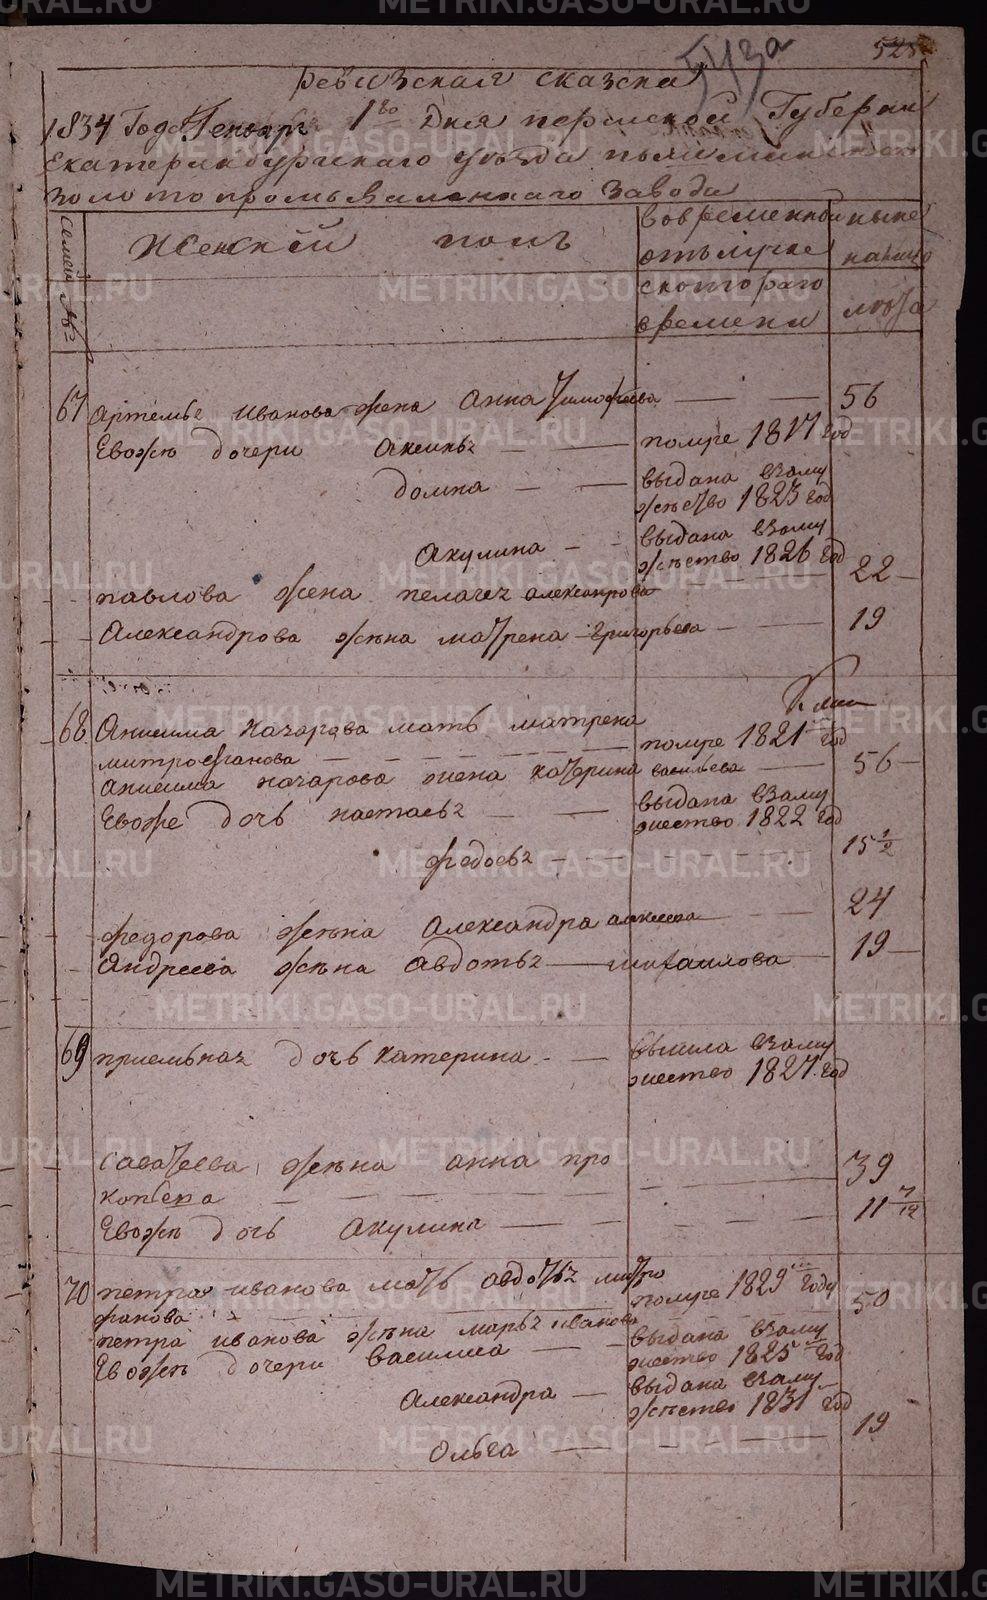 513а
525
Ревизская сказка
1834 Года Генваря 1го Дня пермской Губернии
Екатеринбургскаго уезда пышминскаго
золотопромываленнаго завода
Семей №
Женской полъ
вовременной отълучке
скоторого времени
ныне налицо
лета
67
Артемье Иванова жена Анна Тимофеева — — 56
Евожъ дочери Аксинья — — помре 1817 год
домна — — выдана взаму
жъство 1823 год
Акулина — — выдана взаму
жъство 1826 год
павлова жена пелагея александрова — — 22
Александрова жъна матрена григорьева — — 19
68
Анисима Качарова мать матрена
митрофанова — — помре 1821 год
анисима качарова жена катерина васильева — 56
Евоже дочь настасья — — выдана взаму
жество 1822 год
федосья — — 15 1/2
федорова жъна Александра — — 24
Андреева жъна Авдотья — михаилова — 19
69
приемьная дочь катерина — — вышла взаму
жество 1827 год
саватеева жъна анна про
копьева — — 39
Евожъ дочь Акулина — — 11 7/12
70
петра иванова мать авдотья митро
фанова — — помре 1829 году
петра иванова жъна марья иванова 50
Евожъ дочери василиса — — выдана взаму
жество 1825 год
Александра — выдана взаму
жъство 1831 год
Ольга — — 19
METRIKI.GASO-URAL.RU